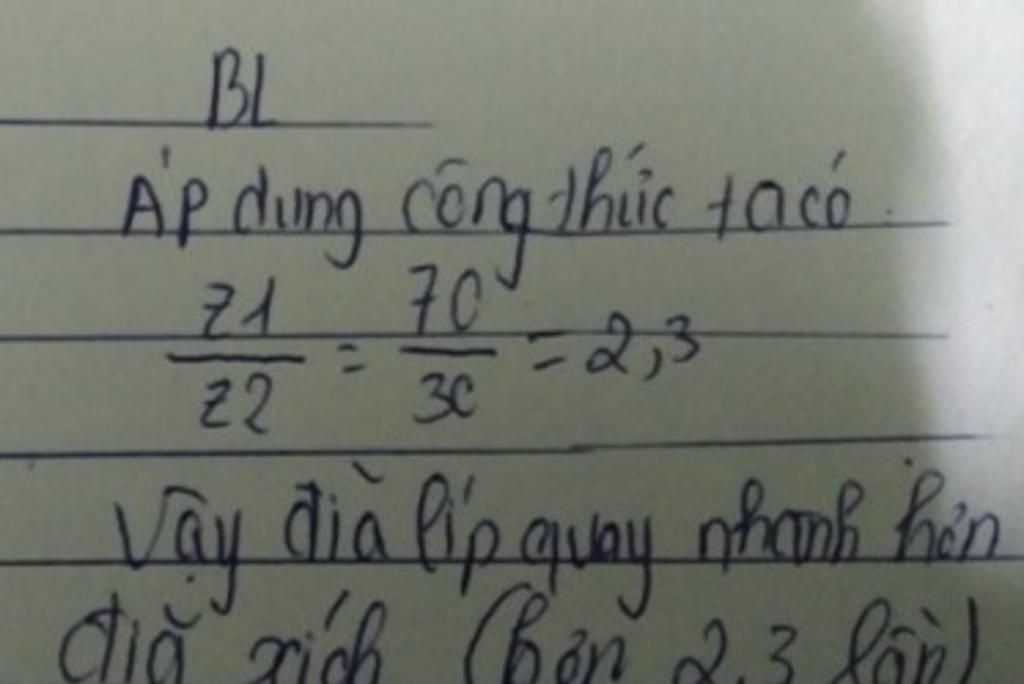 BL
Áp dụng công thức ta có
z1/z2 = 70/30 = 2,3
Vậy đĩa líp quay nhanh hơn
đĩa xích (hơn 2,3 lần)